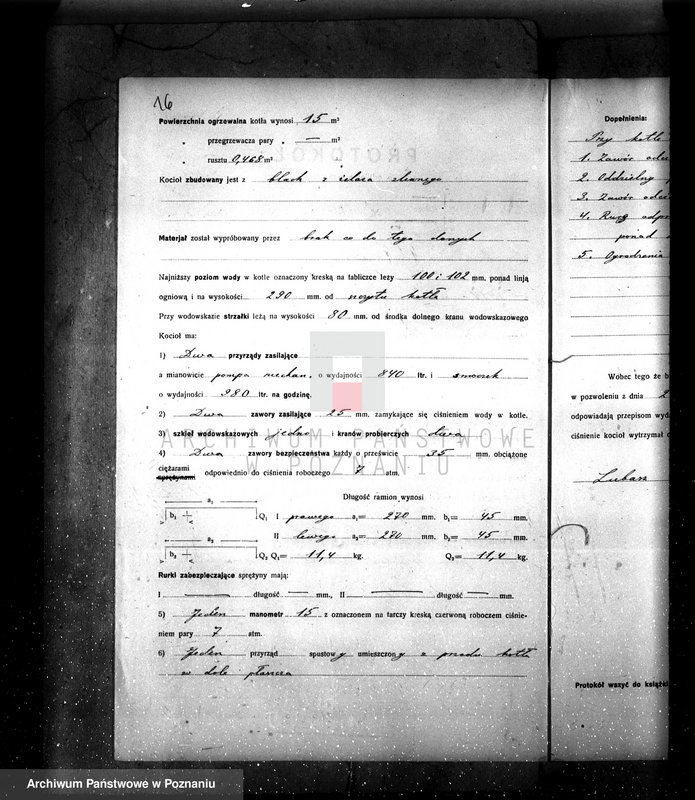 16
Powierzchnia ogrzewalna kotła wynosi 15 m²
„ przegrzewacza pary „ — m²
„ rusztu 0,468 m²
Kocioł zbudowany jest z blach z żelaza zlewnego
Materjał został wypróbowany przez brak co do tego danych
Najniższy poziom wody w kotle oznaczony kreską na tabliczce leży 100 i 102 mm. ponad linją
ogniową i na wysokości 290 mm. od kotła
Przy wodowskazie strzałki leżą na wysokości 80 mm. od środka dolnego kranu wodowskazowego
Kocioł ma:
1) Dwa przyrządy zasilające
a mianowicie pompa mechan. o wydajności 840 ltr. i smoczek
o wydajności 980 ltr. na godzinę.
2) Dwa zawory zasilające 25 mm. zamykające się ciśnieniem wody w kotle.
3) szkieł wodowskazowych jedno i kranów probierczych dwa
4) Dwa zawory bezpieczeństwa każdy o prześwicie 35 mm. obciążone
ciężarami
sprężynami odpowiednio do ciśnienia roboczego 7 atm.
Długość ramion wynosi
a₁
b₁ Q₁ I prawego a₁= 270 mm. b₁= 45 mm.
a₂ II lewego a₂= 270 mm. b₂= 45 mm.
b₂ Q₂ Q₁= 11,4 kg. Q₂= 11,4 kg.
Rurki zabezpieczające sprężyny mają:
I — długość — mm., II — długość — mm.
5) Jeden manometr 15 z oznaczonem na tarczy kreską czerwoną roboczem ciśnie-
niem pary 7 atm.
6) Jeden przyrząd spustowy umieszczony z przodu kotła
w dole płaszcza
Dopełnienia:
Przy kotle
1. Zawór
2. Oddzielny
3. Zawór
4.
ponad
5. Ogrodzenia
Wobec tego że
w pozwoleniu z dnia 2
odpowiadają przepisom
ciśnienie kocioł wytrzymał
Lubasz
Protokół wszyć do książki
ARCHIWUM PAŃSTWOWE
W POZNANIU
Archiwum Państwowe w Poznaniu